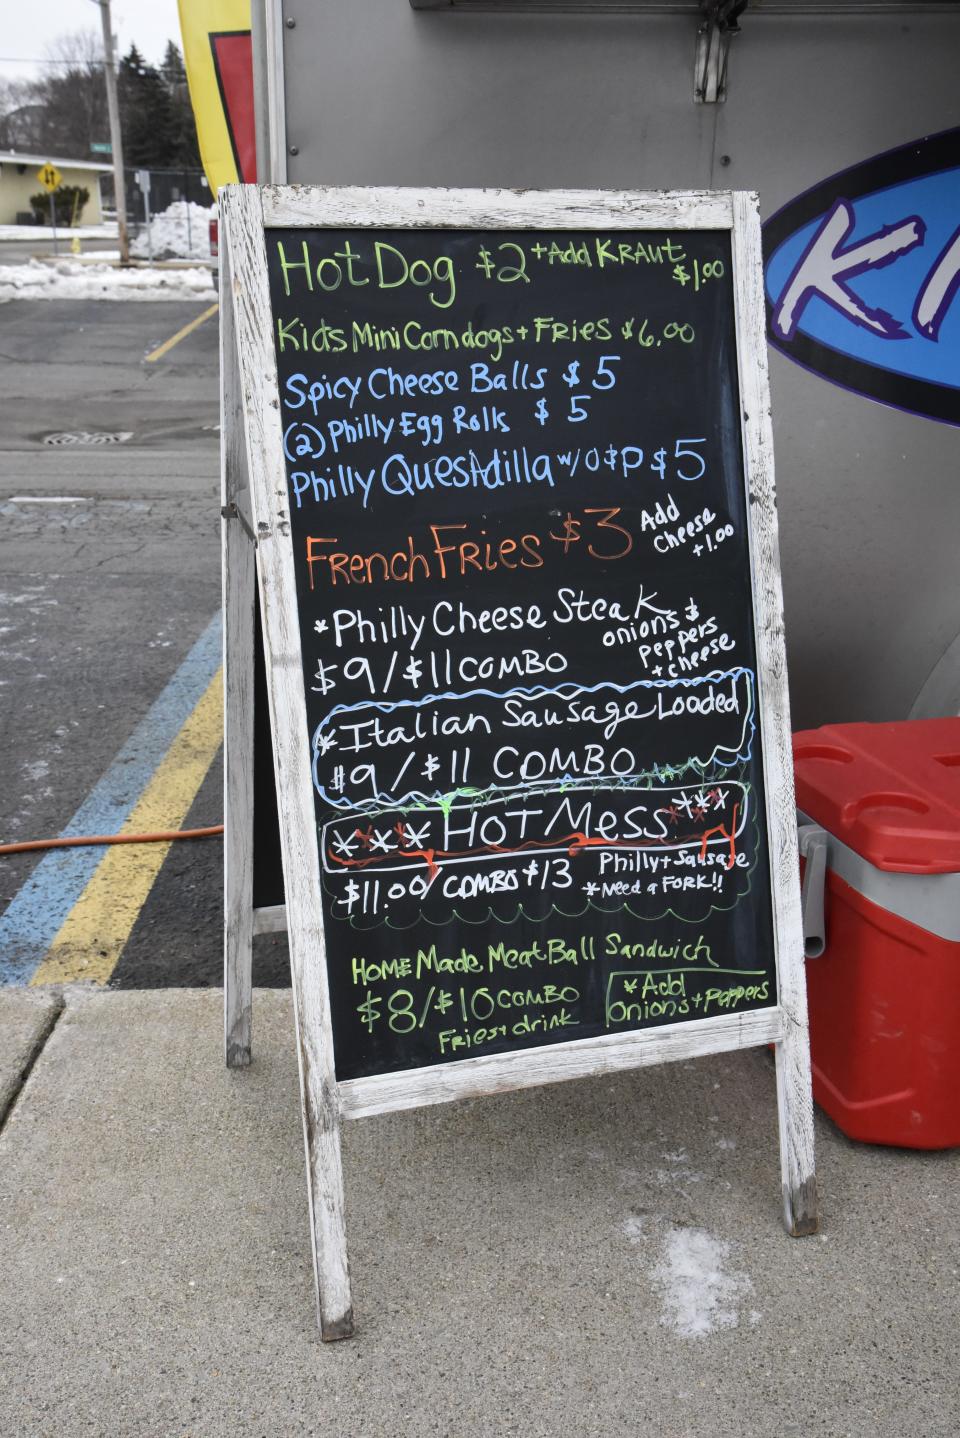 Hot Dog $2 +Add KRAUT
$1.00
Kids Mini Corndogs + FRIES $6.00
Spicy Cheese Balls $5
(2) Philly Egg Rolls $5
Philly QuesAdilla w/ O$P $5
FRench FRies $3
Add
Cheese
+1.00
*Philly Cheese SteaK
$9/$11 COMBO
onions &
peppers
+ cheese
*Italian Sausage Loaded
$9/$11 COMBO
*** HOT Mess ***
$11.00/ COMBO $13
Philly + Sausage
*Need a FORK!!
HOME Made MeatBall Sandwich
$8/$10 COMBO
Fries + drink
*Add
onions + Peppers
K